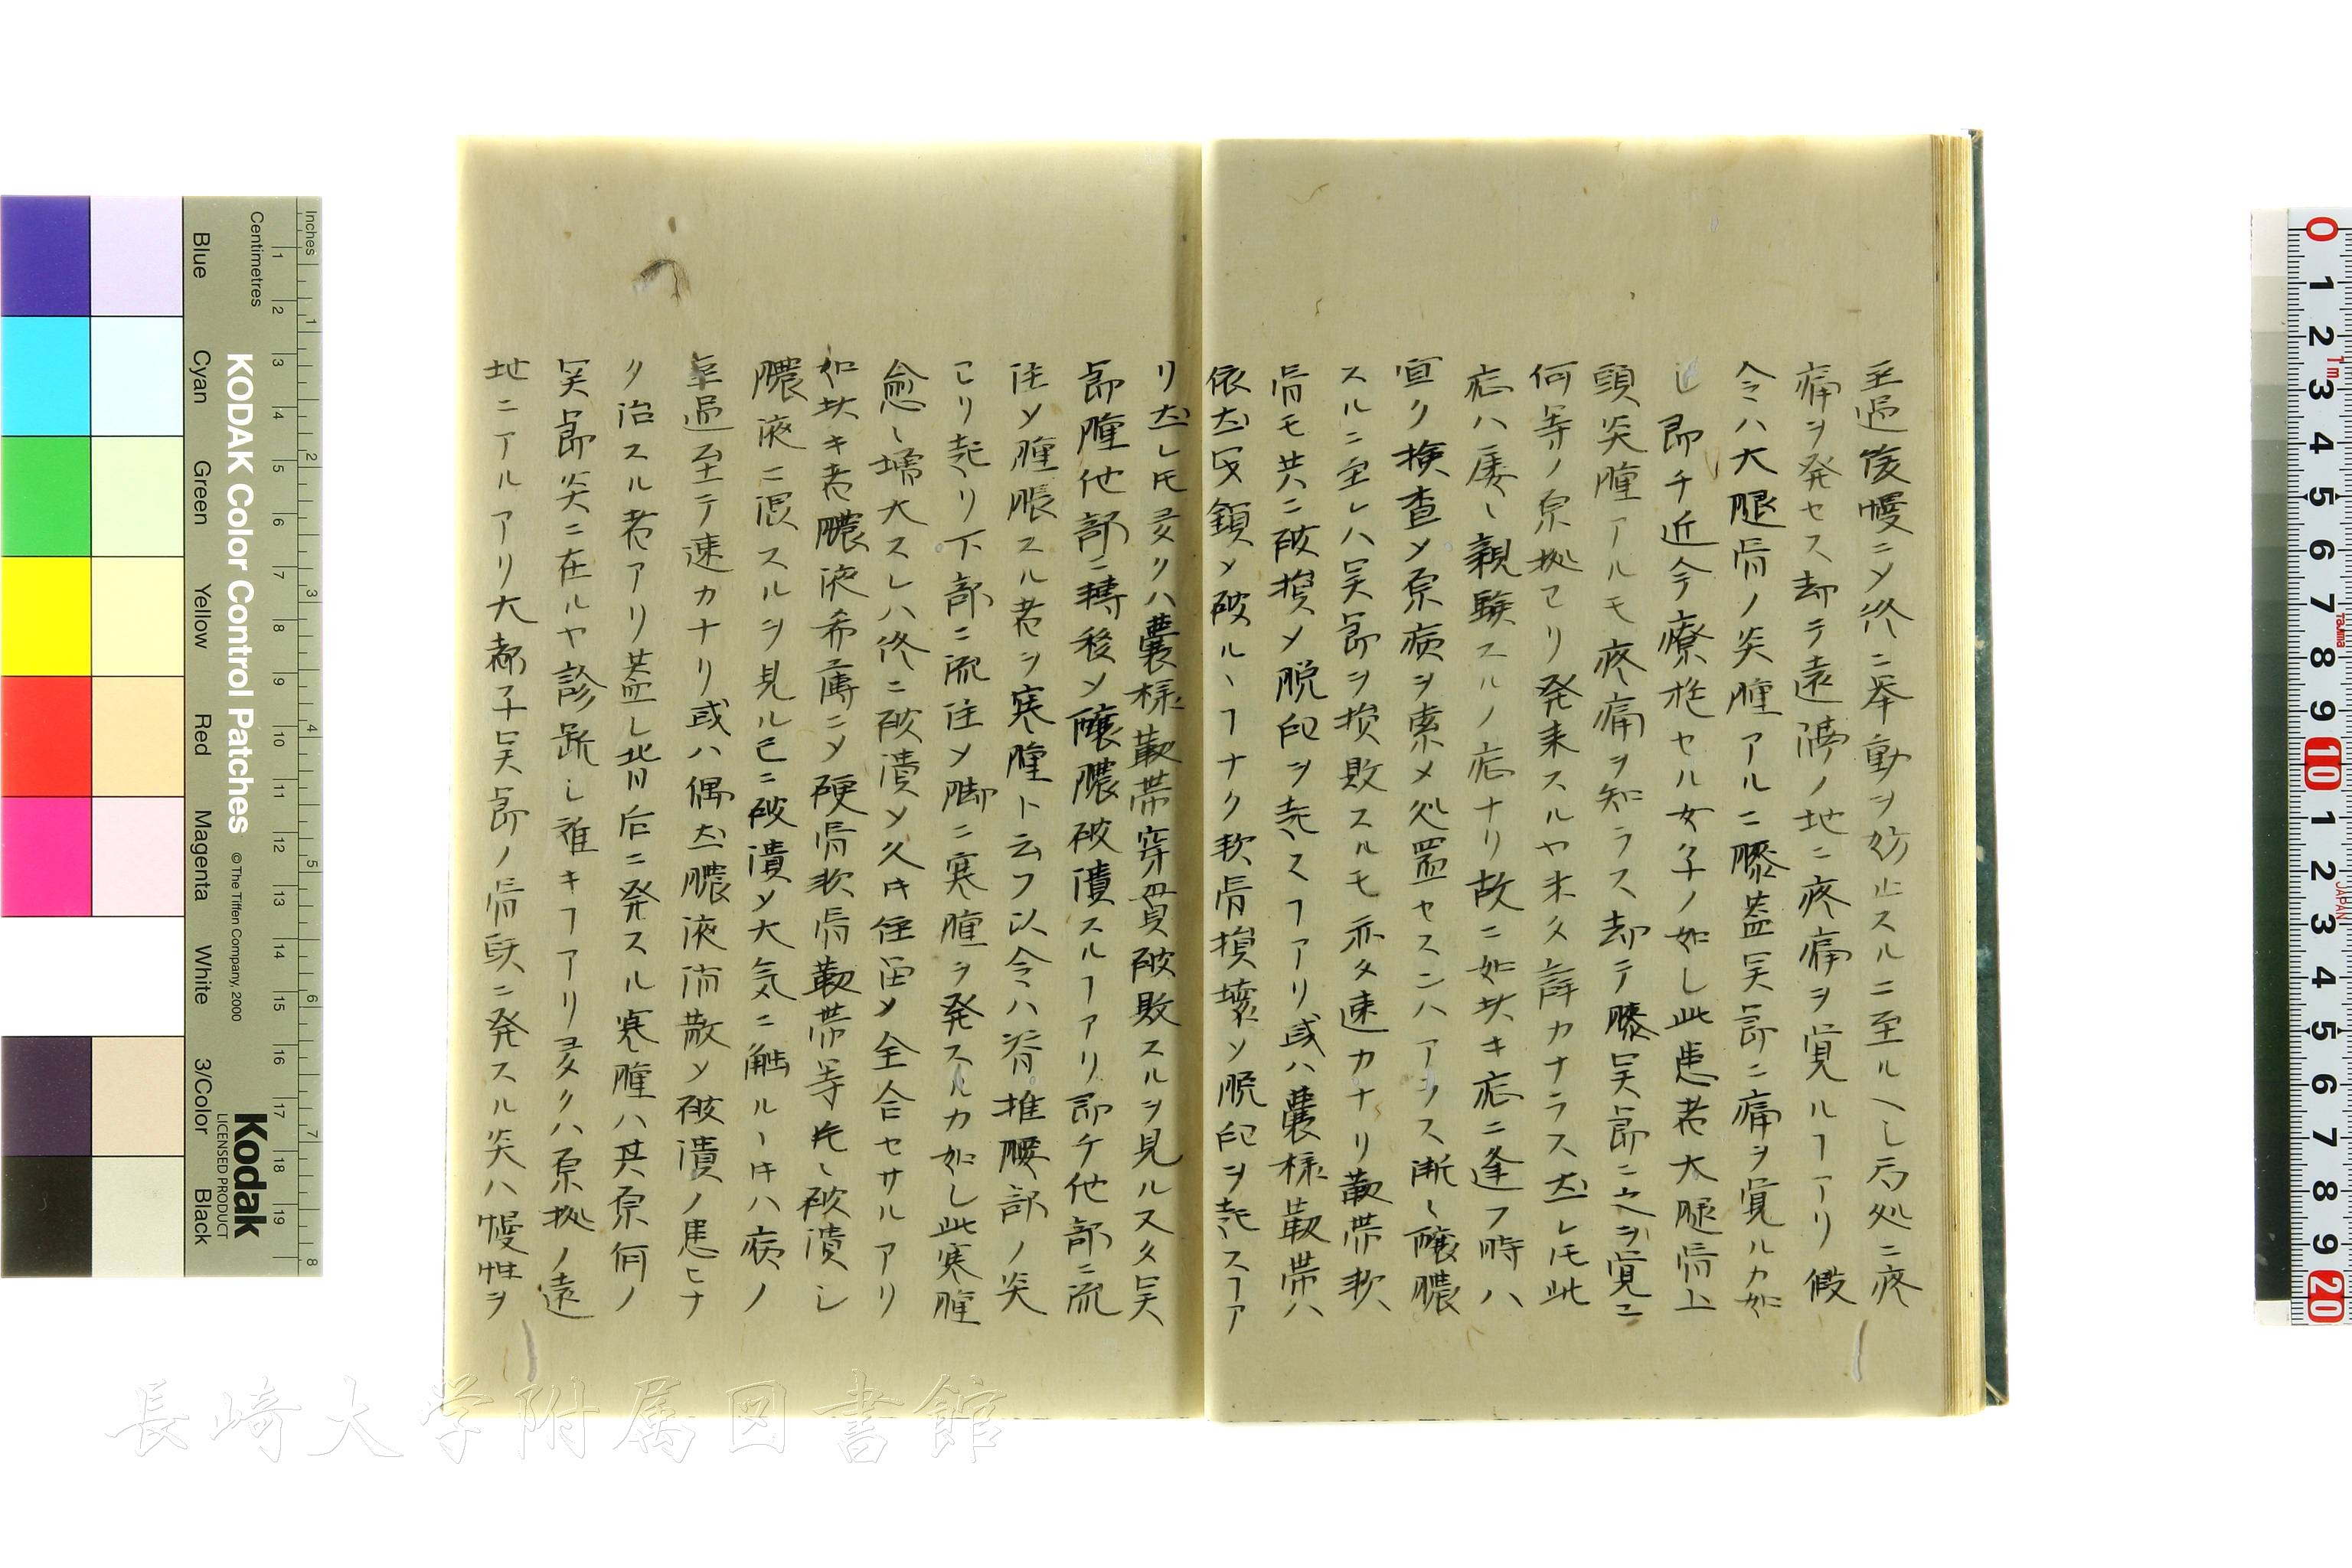 歪過後慢ニメ終ニ挙動ヲ妨止スルニ至ルヘし局処ニ疼
痛ヲ発セス却テ遠隔ノ地ニ疼痛ヲ覚ルヿアリ假
令ハ大腿骨ノ炎腫アルニ膝蓋関節ニ痛ヲ覚ルカ如
し即チ近今療施セル女子ノ如し此患者大腿骨上
頭炎腫アルモ疼痛ヲ知ラス却テ膝関節ニ之ヲ覚ニ
何等ノ原拠ヨリ発来スルヤ未タ詳カナラス然レ𪜈此
症ハ屡〻親験スルノ症ナリ故ニ如此キ症ニ逢フ時ハ
宜ク検査メ原病ヲ索メ処置セスンハアラス漸〻醸膿
スルニ至レハ関節ヲ損敗スルモ亦タ速カナリ靭帯軟
骨モ共ニ破損メ脱臼ヲ起スヿアリ或ハ嚢様靭帯ハ
依然閉鎖メ破ルヽヿナク軟骨損壊ソ脱臼ヲ起スヿア
リ然レ𪜈多クハ嚢様靭帯穿貫破敗スルヲ見ル又タ関
節腫他部ニ轉移ソ醸膿破潰スルヿアリ即チ他部ニ流
注メ腫脹スル者ヲ寒腫ト云フ以令ハ脊推腰部ノ炎
ヨリ起リ下部ニ流注メ脚ニ寒腫ヲ発スルカ如し此寒腫
愈〻増大スレハ終ニ破潰メ久𪜈住留メ全合セサルアリ
如此キ者膿液希薄ニメ硬骨軟骨靭帯等先〻破潰し
膿液ニ混スルヲ見ル已ニ破潰メ大気ニ触ルヽ𪜈ハ病ノ
歪過至テ速カナリ或ハ偶然膿液消散メ破潰ノ患ヒナ
ク治スル者アリ蓋し背后ニ発スル寒腫ハ其原何ノ
関節炎ニ在ルヤ診断し難キヿアリ多クハ原拠ノ遠
地ニアルアリ大都子関節ノ骨頭ニ発スル炎ハ慢性ヲ
KODAK Color Control Patches
© The Tiffen Company, 2000
Kodak
LICENSED PRODUCT
Inches
Centimetres
Blue
Cyan
Green
Yellow
Red
Magenta
White
3/Color
Black
長崎大学附属図書館